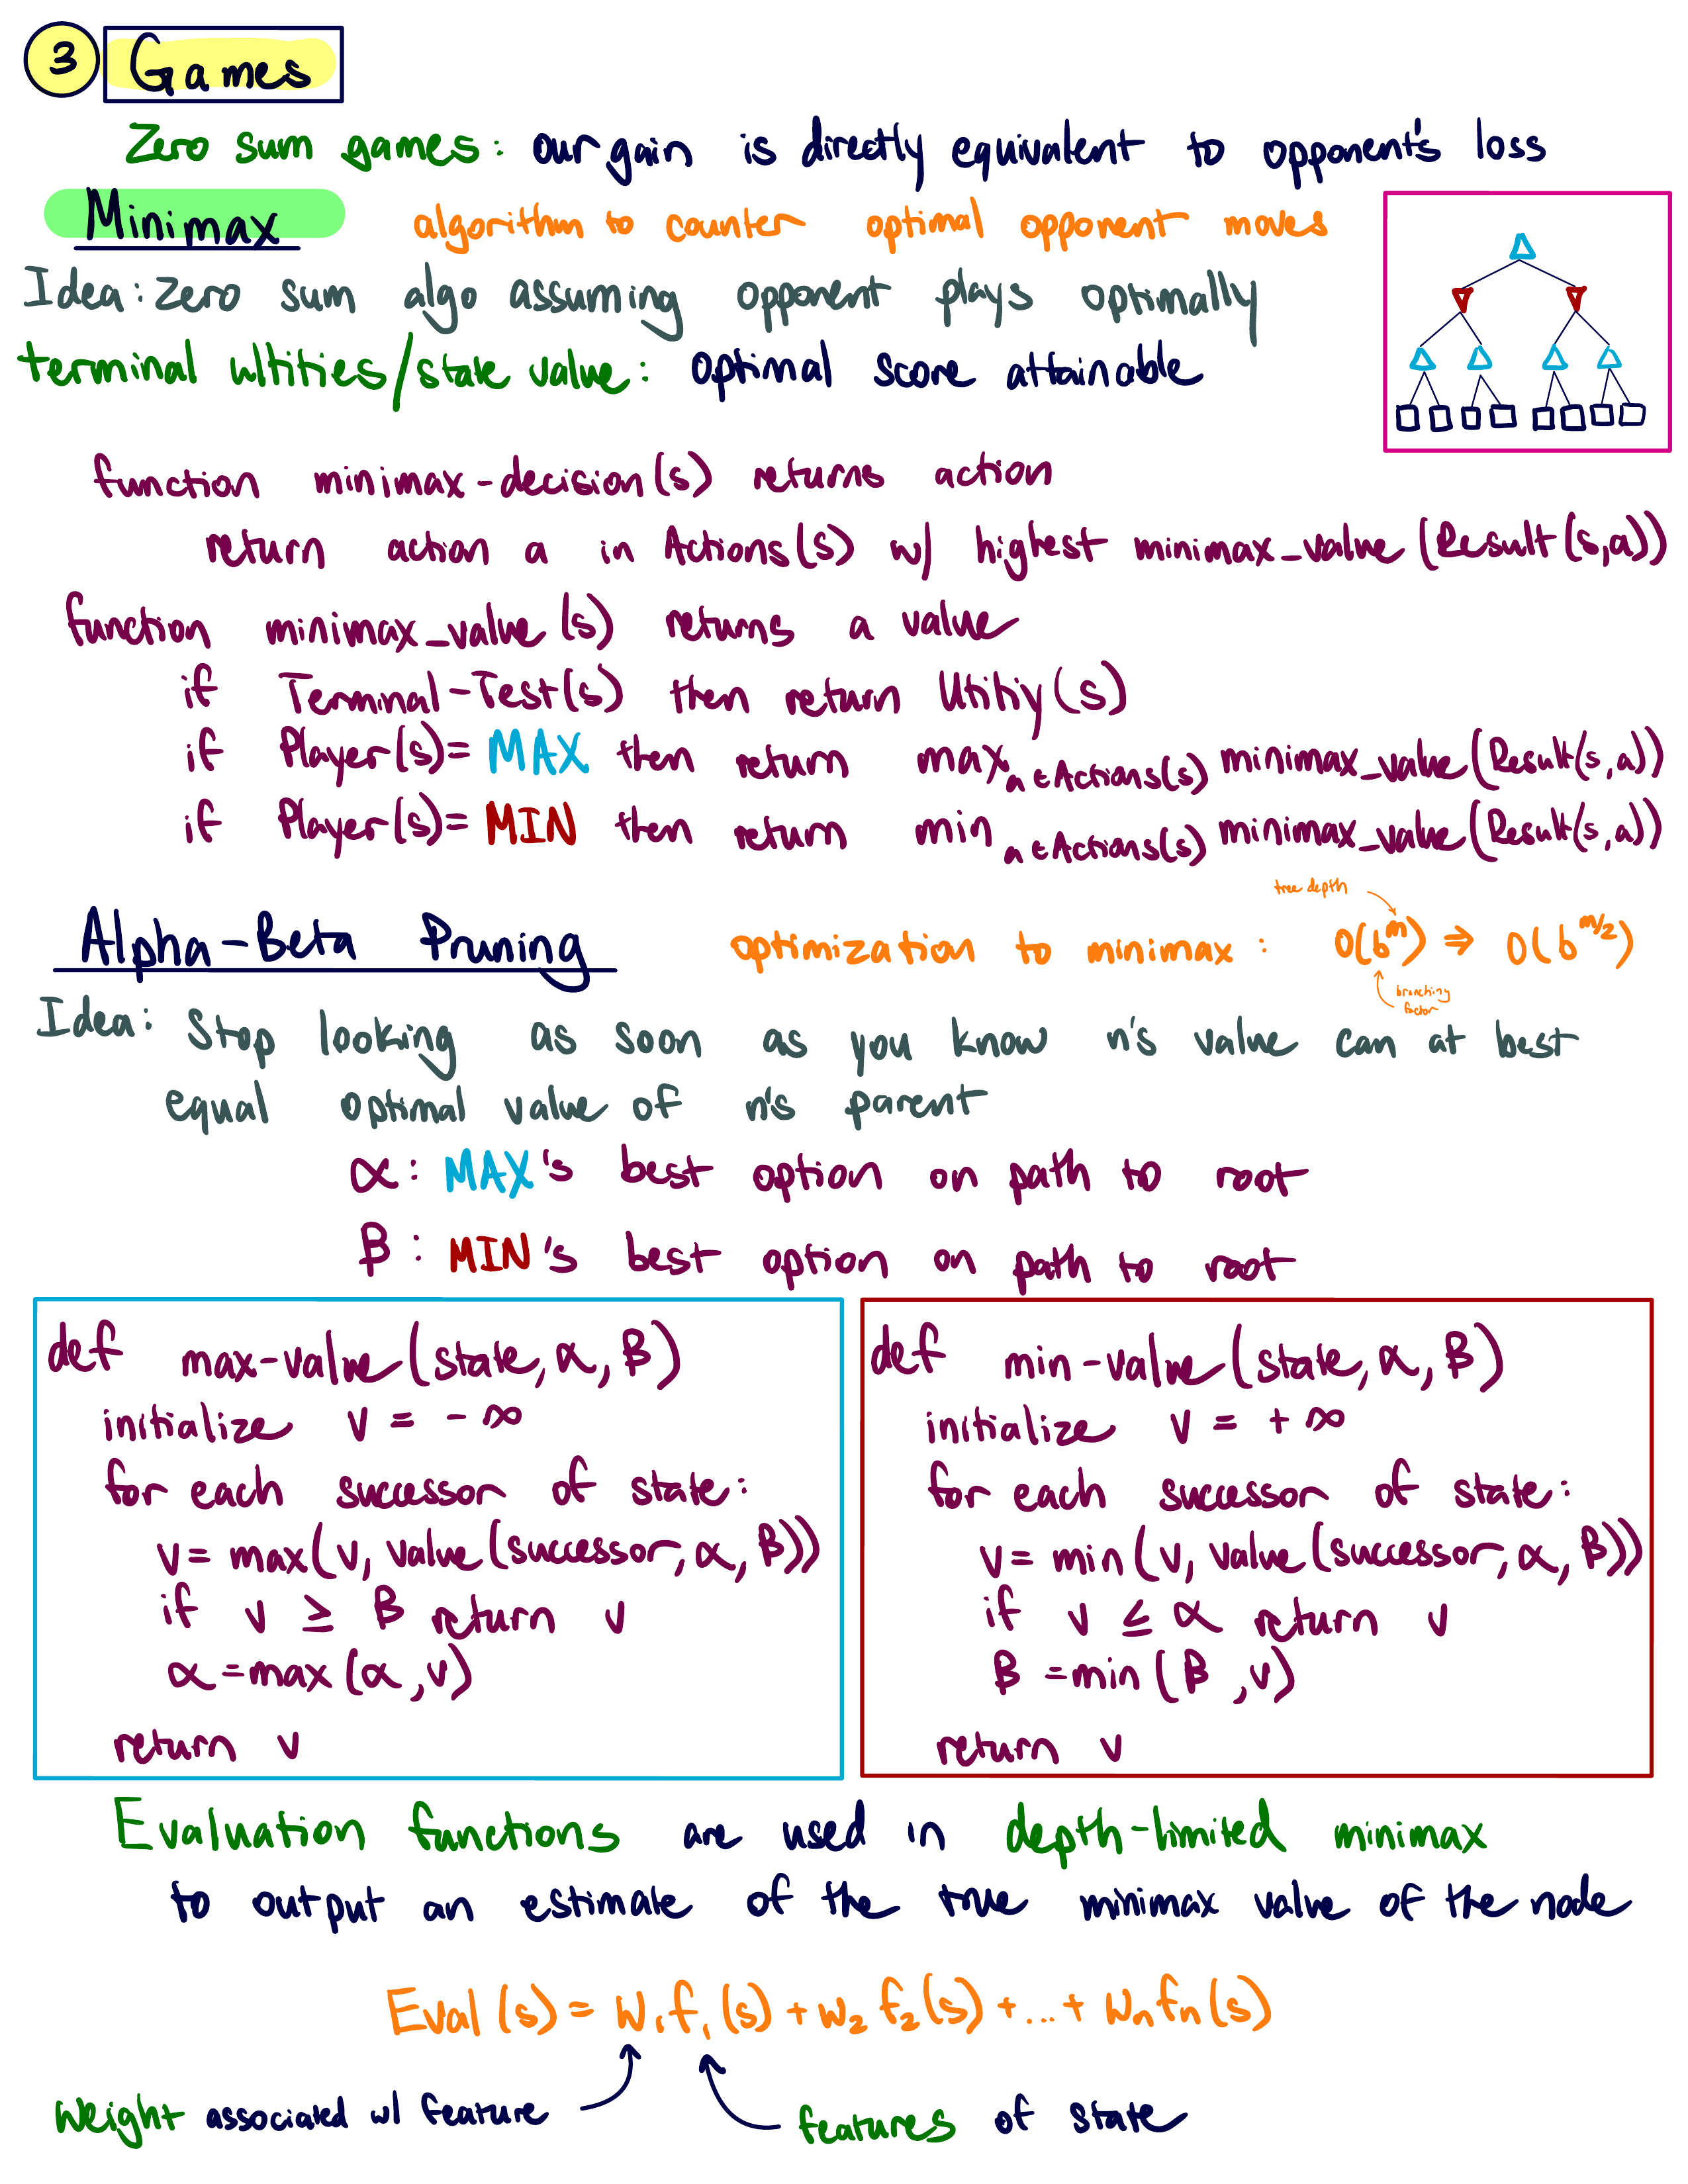 3 Games
Zero sum games: our gain is directly equivalent to opponent's loss
Minimax algorithm to counter optimal opponent moves
Idea: zero sum algo assuming opponent plays optimally
terminal ultities/state value: optimal score attainable
function minimax-decision(s) returns action
return action a in Actions(s) w/ highest minimax_value (Result(s,a))
function minimax_value(s) returns a value
if Terminal-Test(s) then return Utitiy(s)
if Player(s)= MAX then return max a∈Actions(s) minimax_value(Result(s,a))
if Player(s)= MIN then return min a∈Actions(s) minimax_value(Result(s,a))
tree depth
Alpha-Beta Pruning optimization to minimax: O(b^m) ⇒ O(b^m/2)
branching
factor
Idea: Stop looking as soon as you know n's value can at best
equal optimal value of n's parent
α: MAX's best option on path to root
β: MIN's best option on path to root
def max-value(state, α, β)
initialize v = -∞
for each successor of state:
v= max(v, value(successor, α, β))
if v ≥ β return v
α =max (α, v)
return v
def min-value(state, α, β)
initialize v = +∞
for each successor of state:
v= min(v, value(successor, α, β))
if v ≤ α return v
β =min (β, v)
return v
Evaluation functions are used in depth-limited minimax
to output an estimate of the true minimax value of the node
Eval(s) = w₁f₁(s) + w₂f₂(s) +...+ wₙfₙ(s)
Weight associated w/ feature
features of state